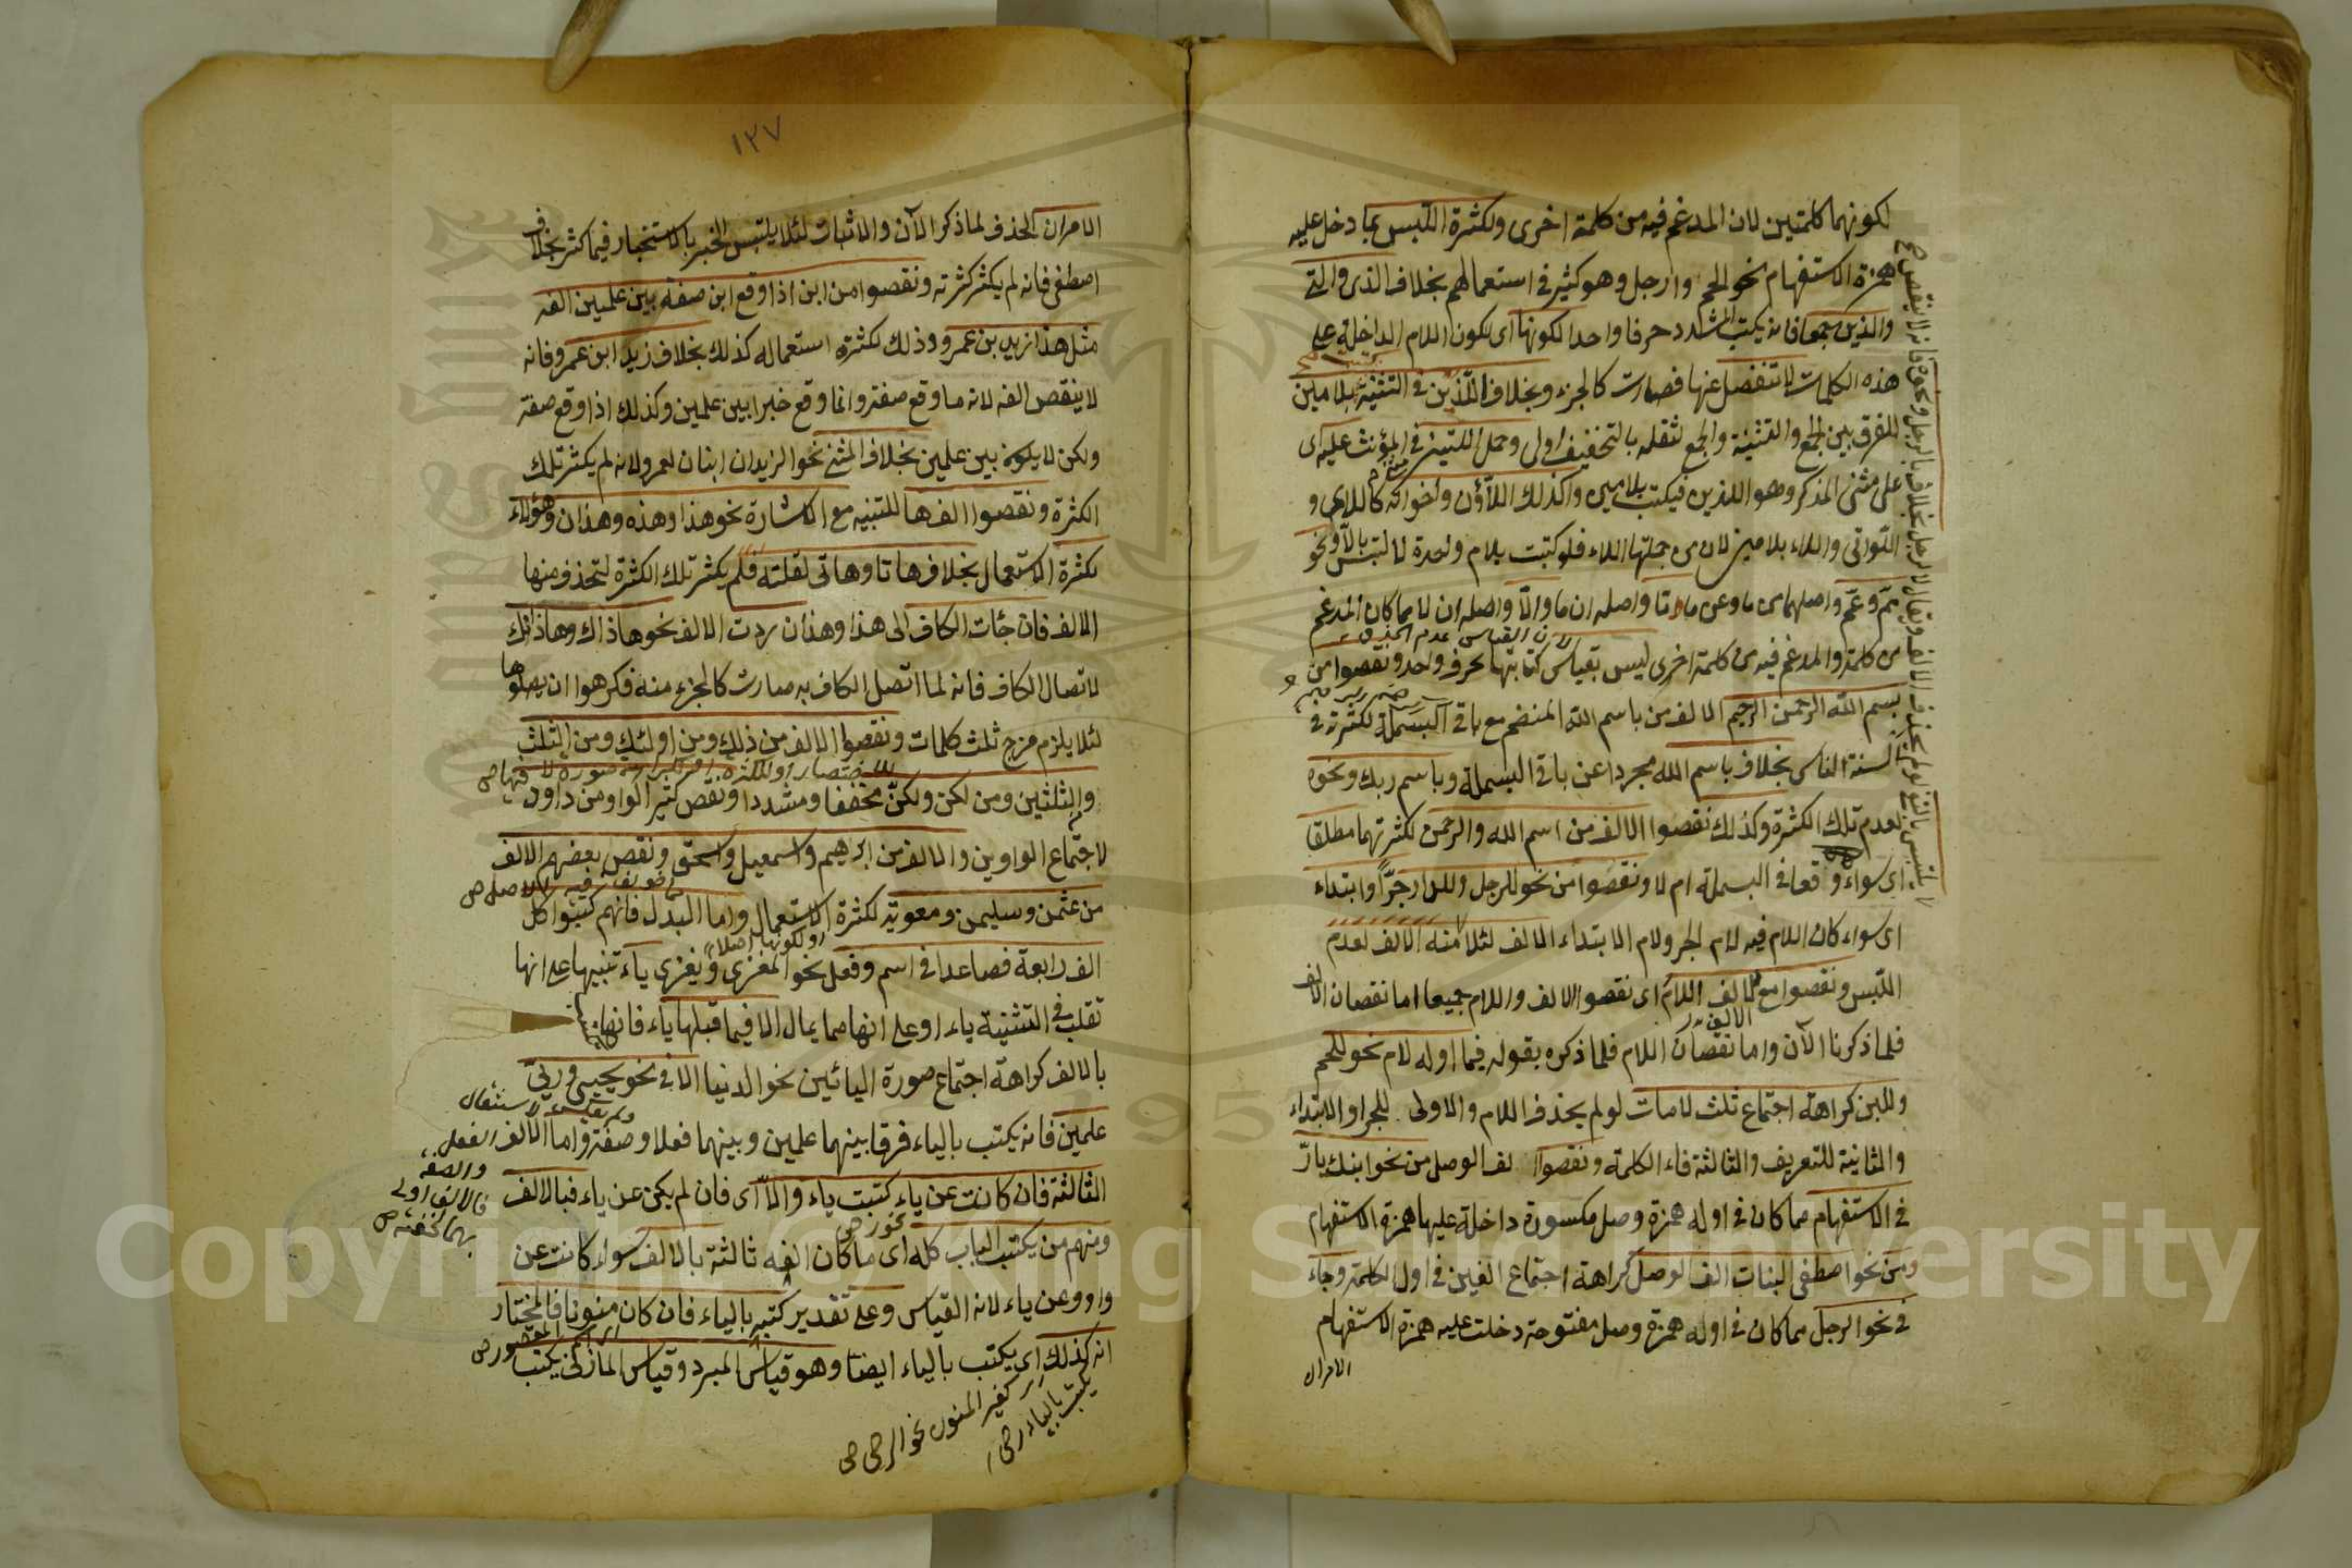 لكونهما كلمتين لان المدغم فيه من كلمة اخرى ولكثرة اللبس بما دخل عليه
همزة الاستفهام نحو الحم وارجل وهو كثير في استعمالهم بخلاف الذى والتى
والذين جمعا فانه يكتب المشدد حرفا واحدا لكونها اى لكون اللام الداخلة على
هذه الكلمات لا تنفصل عنها فصارت كالجزء وبخلاف اللذين في التثنية بلامين
للفرق بين الجمع والتثنية والجمع لثقله بالتخفيف اولى وحمل اللتين في المؤنث عليه اى
على مثنى المذكر وهو اللذين فيكتب بلامين وكذلك اللاؤن واخواته كاللاى و
اللواتى واللاء بلامين لان من جملتها اللاء فلو كتبت بلام واحدة لالتبس بالا ونحو
مم وعم واصلهما من ما وعن ما واما واصله ان ما والا واصله ان لا مما كان المدغم
من كلمة والمدغم فيه من كلمة اخرى ليس بقياس كتابتها بحرف واحد ونقصوا من
لان القياس عدم الحذف
بسم الله الرحمن الرحيم الالف من باسم الله المنضم مع باقى البسملة لكثرته في
السنة الناس بخلاف باسم الله مجردا عن باقى البسملة وباسم ربك ونحوه
لعدم تلك الكثرة وكذلك نقصوا الالف من اسم الله والرحمن لكثرتهما مطلقا
اى سواء وقعا في البسملة ام لا ونقصوا من نحو للرجل وللدار جرا وابتداء
اى سواء كان اللام فيه لام الجر ولام الابتداء الالف لئلا منه الالف لعدم
اللبس ونقصوا مع الالف اللام اى نقصوا الالف واللام جميعا اما نقصان الالف
فلما ذكرنا الآن واما نقصان اللام فلما ذكره بقوله فيما اوله لام نحو للحم
وللبن كراهة اجتماع ثلث لامات لو لم يحذف اللام والاولى للجر او الابتداء
والثانية للتعريف والثالثة فاء الكلمة ونقصوا الف الوصل من نحو ابنك بار
في الاستفهام مما كان في اوله همزة وصل مكسورة داخلة عليها همزة الاستفهام
ومن نحو اصطفى البنات الف الوصل كراهة اجتماع الفين في اول الكلمة وجاء
في نحو الرجل مما كان في اوله همزة وصل مفتوحة دخلت عليه همزة الاستفهام
الامران
١٢٧
الامران الحذف لما ذكر الآن والاثبات لئلا يلتبس الخبر بالاستخبار فيما كثر بخلاف
اصطفى فانه لم يكثر كثرته ونقصوا من ابن اذا وقع ابن صفة بين علمين الفه
مثل هذا زيد بن عمرو وذلك لكثرة استعماله كذلك بخلاف زيد ابن عمرو فانه
لا ينقص الفه لانه ما وقع صفة وانما وقع خبرا بين علمين وكذلك اذا وقع صفة
ولكن لا يكون بين علمين بخلاف المثنى نحو الزيدان ابنان لعمرو لانه لم يكثر تلك
الكثرة ونقصوا الف ها للتنبيه مع الاشارة نحو هذا وهذه وهذان وهؤلاء
لكثرة الاستعمال بخلاف هاتا وهاتى لقلته فلم يكثر تلك الكثرة لتحذف منها
الالف فان جاءت الكاف الى هذا وهذان ردت الالف نحو هاذاك وهاذانك
لاتصال الكاف فانه لما اتصل الكاف به صارت كالجزء منه فكرهوا ان يصلوها
لئلا يلزم مزج ثلث كلمات ونقصوا الالف من ذلك ومن اولئك ومن الثلث
والثلثين ومن لكن ولكنّ مخففا ومشددا ونقص كثير الواو من داود
لاجتماع الواوين والالف من ابرهيم واسمعيل واسحق ونقص بعضهم الالف
من عثمن وسليمن ومعوية لكثرة الاستعمال واما البدل فانهم كتبوا كل
الف رابعة فصاعدا في اسم وفعل نحو المغزى ويغزى ياء تنبيها على انها
تقلب في التثنية ياء او على انها مما يمال الا فيما قبلها ياء فانها
بالالف كراهة اجتماع صورة اليائين نحو الدنيا الا في نحو يحيى وريى
علمين فانه يكتب بالياء فرقا بينهما علمين وبينهما فعلا وصفة واما الالف
الثالثة فان كانت عن ياء كتبت ياء والا اى فان لم يكن عن ياء فبالالف
ومنهم من يكتب الباب كله اى ما كان الفه ثالثة بالالف سواء كانت عن
واو وعن ياء لانه القياس وعلى تقدير كتبه بالياء فان كان منونا فالمختار
انه كذلك اى يكتب بالياء ايضا وهو قياس المبرد وقياس المازنى يكتب
Copyright © King Saud University